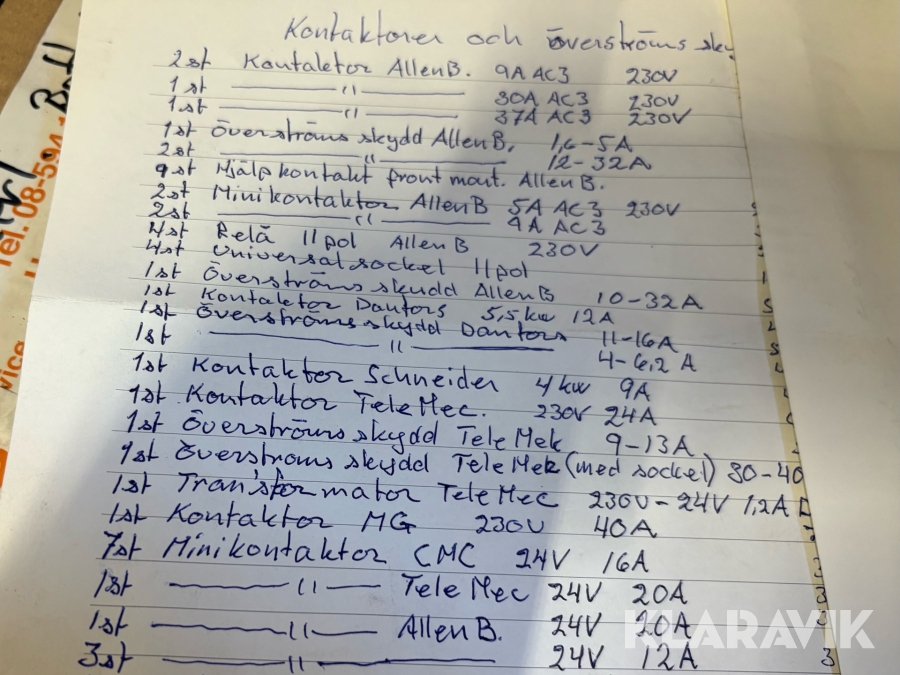 Kontaktorer och överströms sky
2st Kontaktor Allen B. 9A AC3 230V
1st —— " —— 30A AC3 230V
1st —— " —— 37A AC3 230V
1st Överströms skydd Allen B. 1,6-5A
2st —— " —— 12-32A
9st Hjälpkontakt front mont. Allen B.
2st Minikontaktor Allen B 5A AC3 230V
2st —— " —— 9A AC3
4st Relä 11pol Allen B 230V
4st Universalsockel 11pol
1st Överströms skydd Allen B 10-32A
1st Kontaktor Danfors 5,5kw 12A
1st Överströms skydd Danfors 11-16A
1st —— " —— 4-6,2 A
1st Kontaktor Schneider 4kw 9A
1st Kontaktor TeleMec. 230V 24A
1st Överströms skydd TeleMek 9-13A
1st Överströms skydd TeleMek (med sockel) 30-40
1st Transformator TeleMec 230V-24V 1,2A
1st Kontaktor MG 230V 40A
7st Minikontaktor CMC 24V 16A
1st —— " —— TeleMec 24V 20A
1st —— " —— Allen B. 24V 20A
3st —— " —— 24V 12A
Tel. 08-594
vice
KLARAVIK